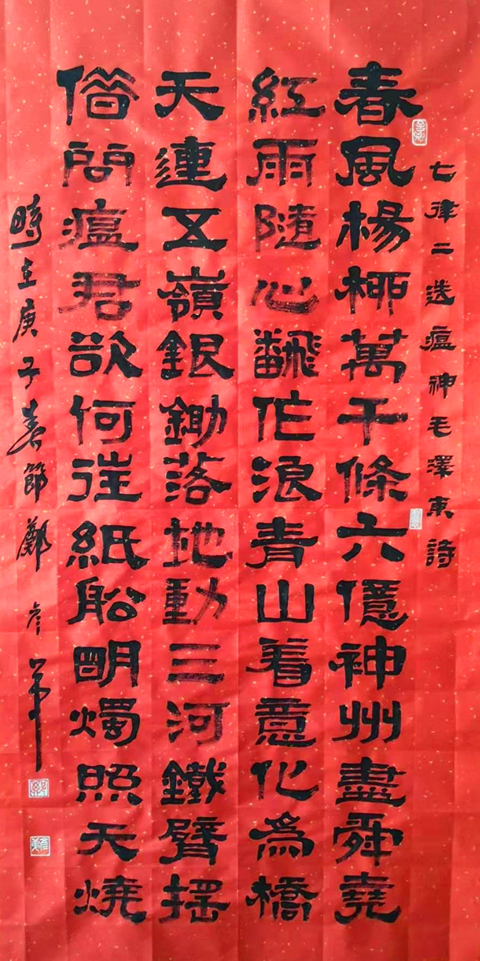 七律二送瘟神毛澤東詩
春風楊柳萬千條六億神州盡舜堯
紅雨隨心飜作浪青山着意化為橋
天連五嶺銀鋤落地動三河鐵臂搖
借問瘟君欲何往紙船明燭照天燒
時在庚子春節鄭